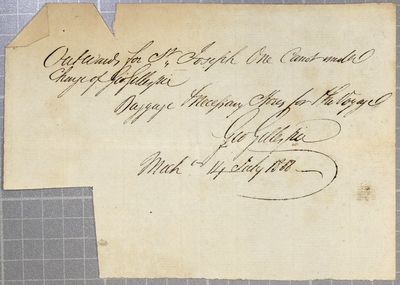 Outwards for St. Joseph One Canot under
Charge of Geo Gillespie
Baggage & Necessary Stores for the Voyage
Geo Gillespie
Mack 14 July 1808